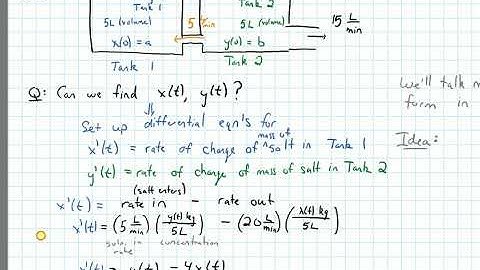 Tank 1 Tank 2
5L (volume) 5 L/min 5L (volume) 15 L/min
x(0) = a y(0) = b
Tank 1 Tank 2
Q: Can we find x(t), y(t)?
we'll talk
form in
Set up differential eqn's for
Idea:
x'(t) = rate of change of mass of salt in Tank 1
y'(t) = rate of change of mass of salt in Tank 2
(salt enters)
x'(t) = rate in - rate out
x'(t) = (5 L/min)(y(t) kg/5L) - (20 L/min)(x(t) kg/5L)
soln. in rate concentration
x'(t) = y(t) - 4x(t)